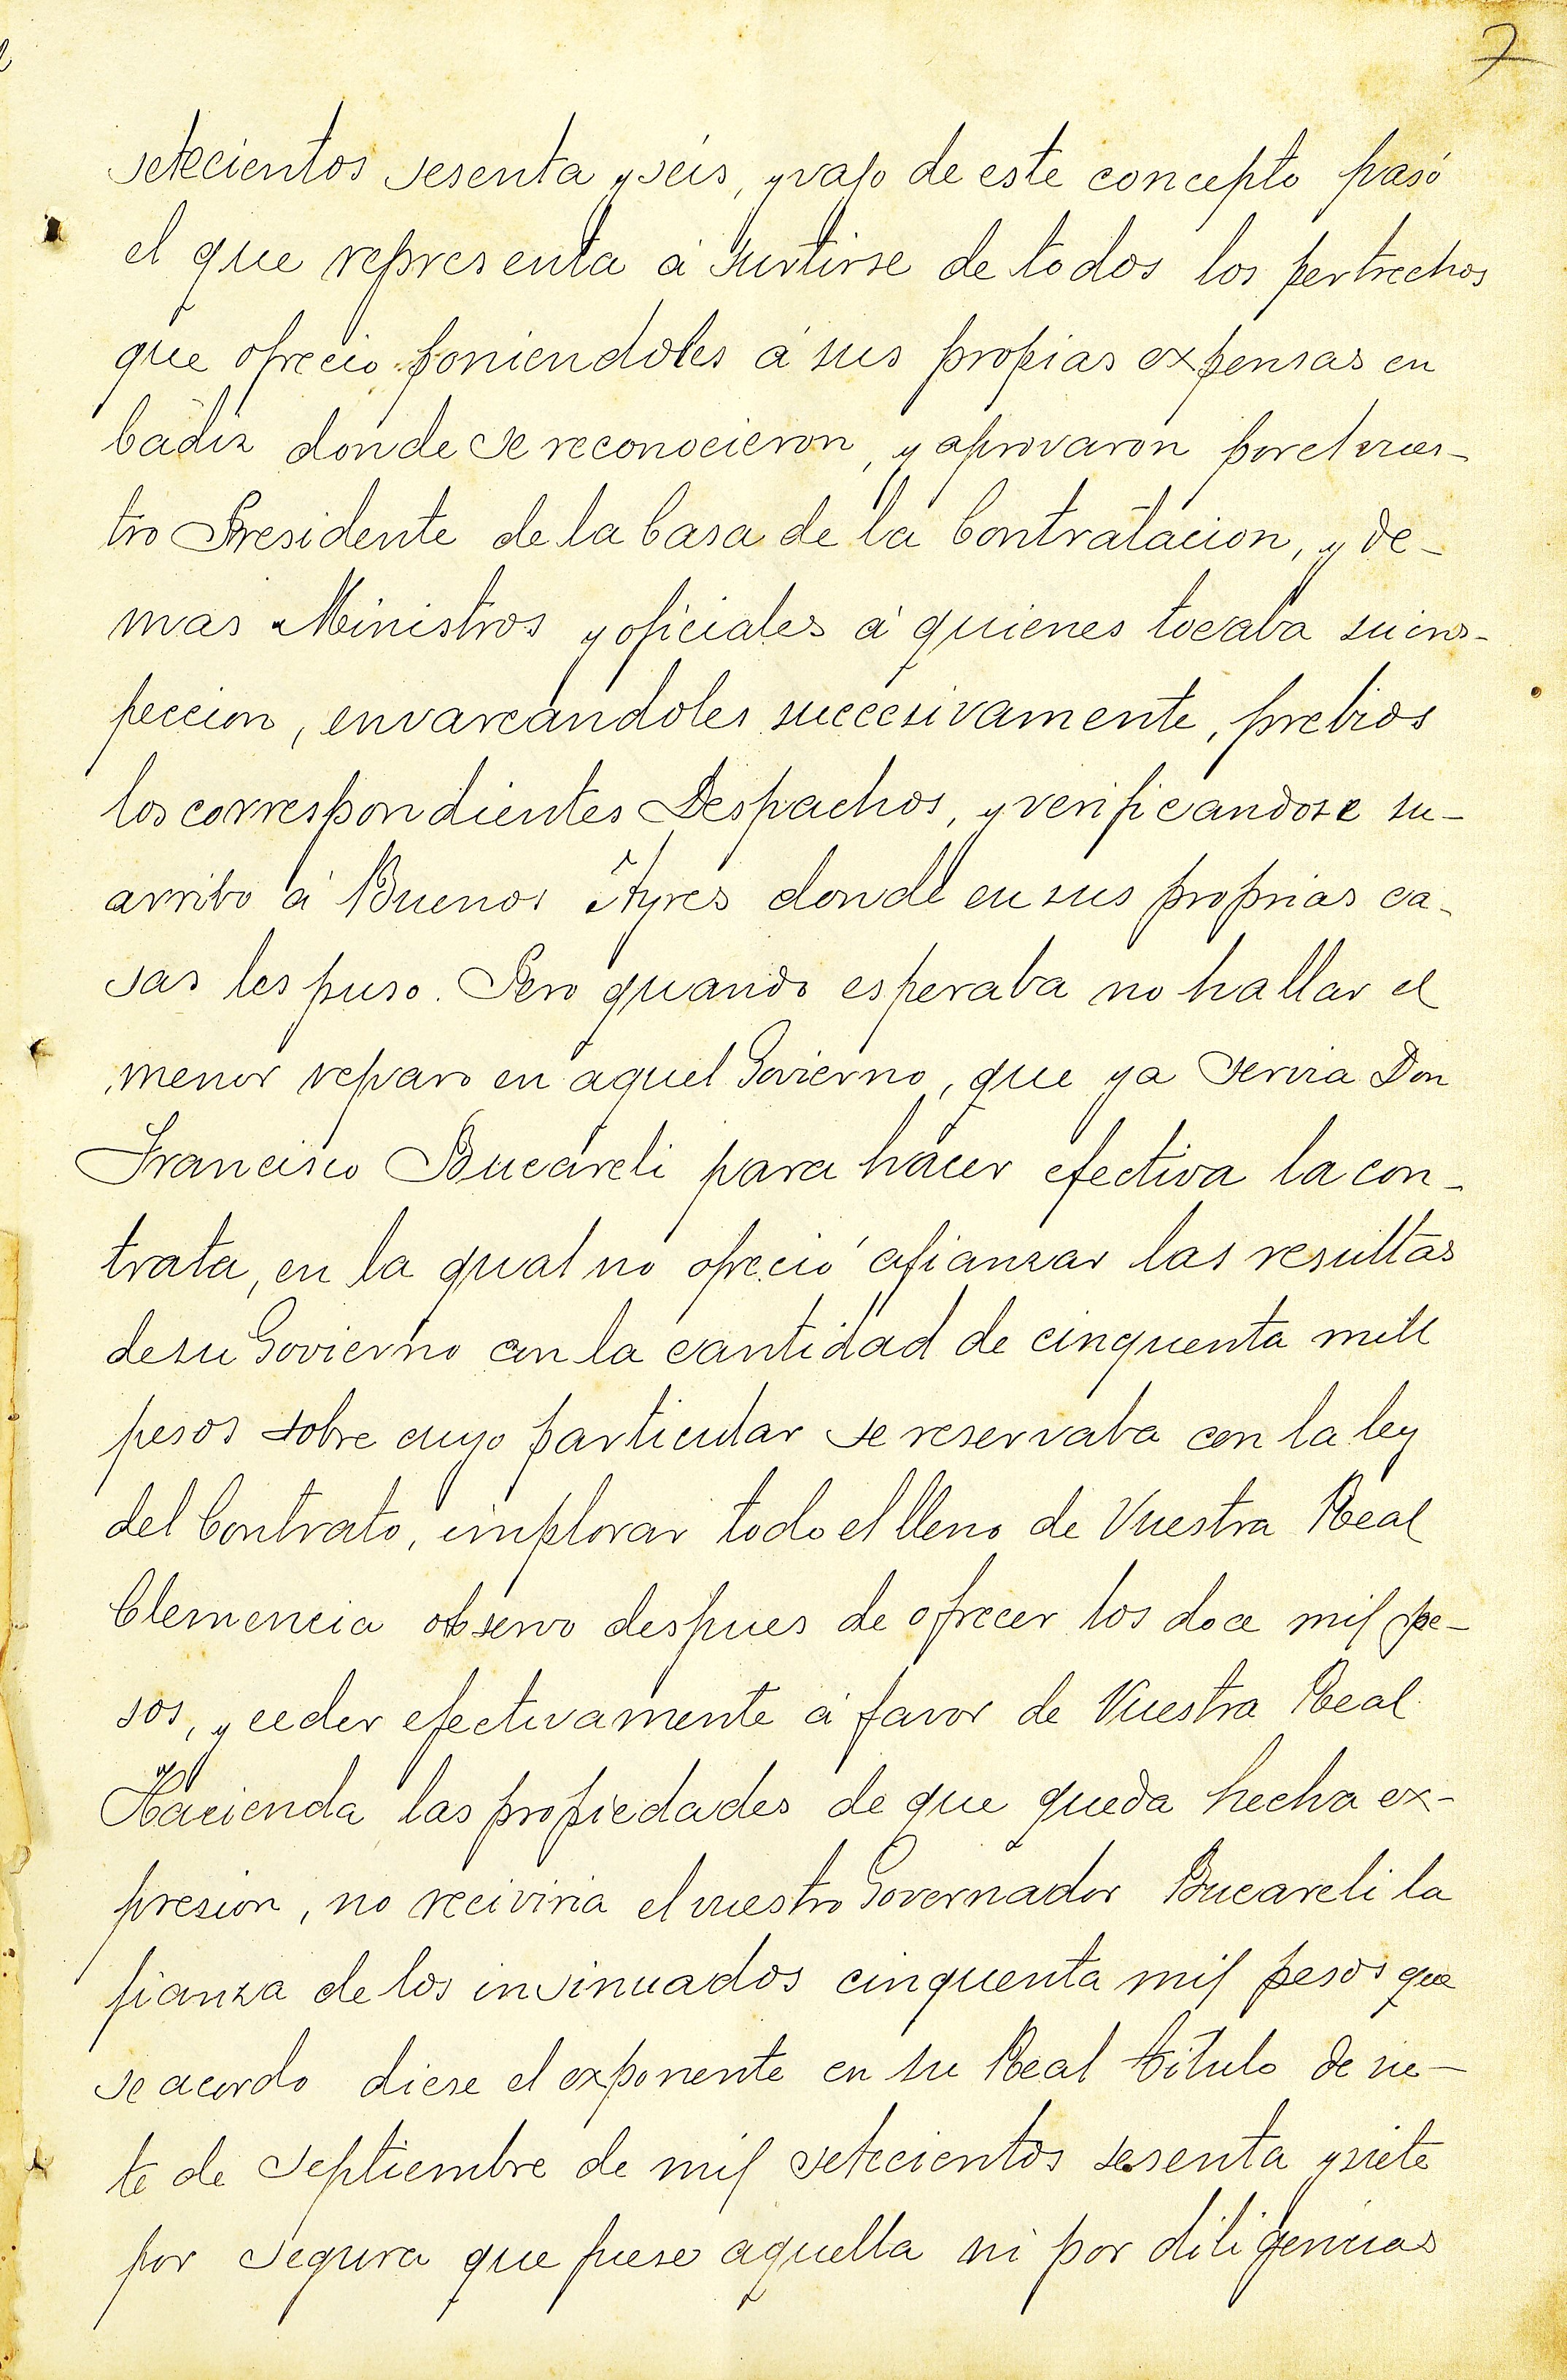 7
setecientos sesenta y séis, y vajo de este concepto pasó
el que representa á surtirse de todos los pertrechos
que ofrecio poniendoles á sus propias expensas en
Cádiz donde se reconocieron, y aprovaron por el vues-
tro Presidente de la Casa de la Contratacion, y de-
mas Ministros y oficiales á quienes tocaba su ins-
peccion, envarcandoles succesivamente, prebios
los correspondientes Despachos, y verificandose su-
arribo á Buenos Ayres donde en sus proprias ca-
sas les puso. Pero quando esperaba no hallar el
menor reparo en aquel Govierno, que ya servia Don
Francisco Bucareli para hacer efectiva la con-
trata, en la qual no ofreció afianzar las resultas
de su Govierno con la cantidad de cinquenta mill
pesos sobre cuyo particular se reservaba con la ley
del Contrato, implorar todo el lleno de Vuestra Real
Clemencia observo despues de ofrecer los doce mil pe-
sos, y ceder efectivamente á favor de Vuestra Real
Hacienda las propiedades de que queda hecha ex-
presion, no reciviria el vuestro Governador Bucareli la
fianza de los insinuados cinquenta mil pesos que
se acordo diese el exponente en su Real titulo de sie-
te de Septiembre de mil setecientos sesenta y siete
por segura que fuese aquella ni por diligencias